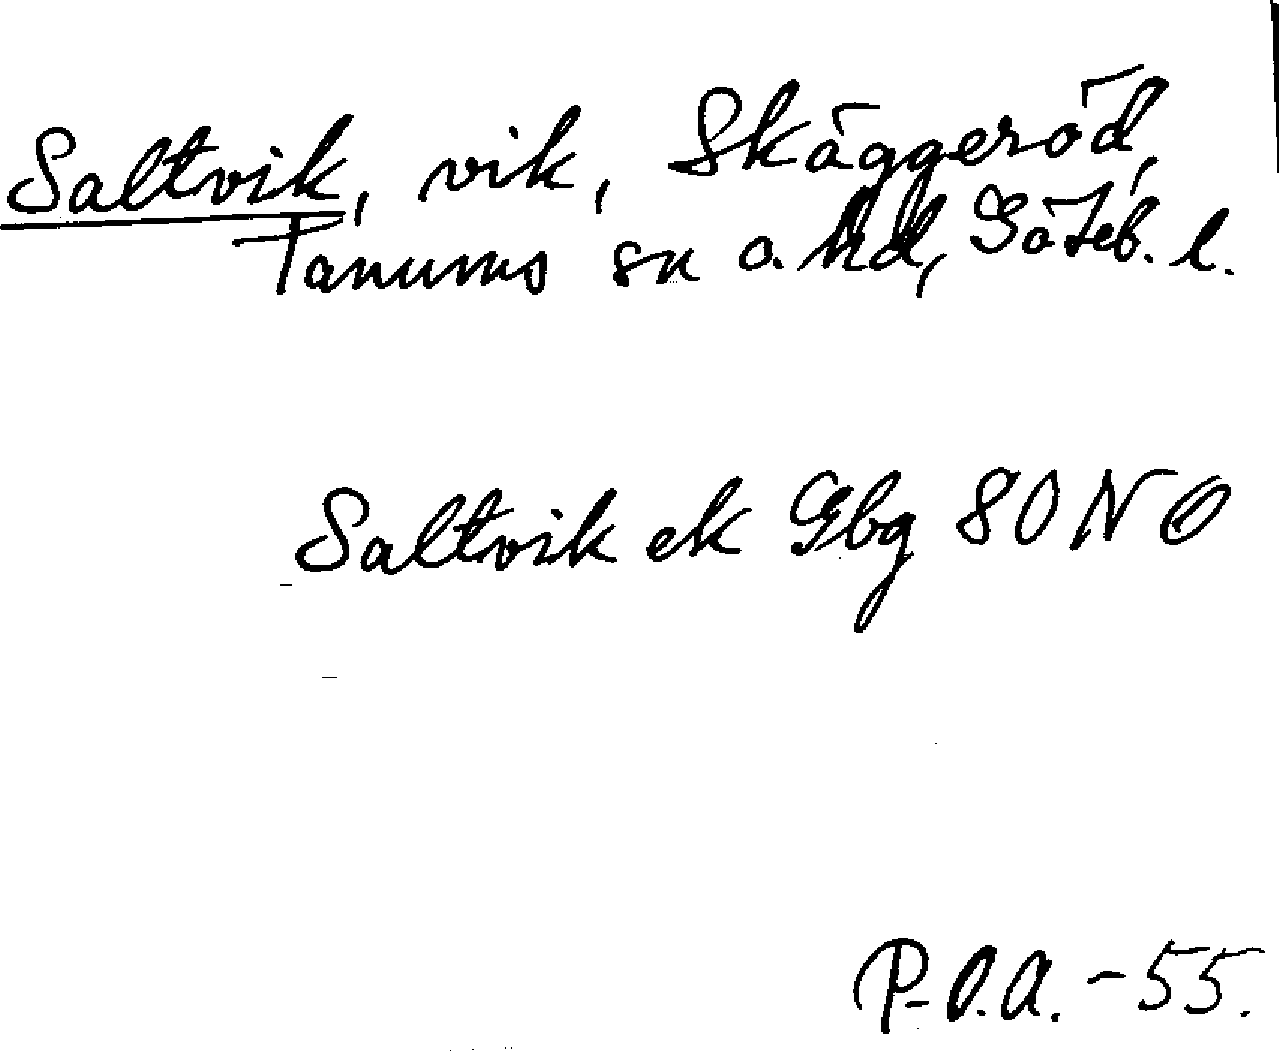 Saltvik, vik, Skäggeröd,
Tanums sn o. hd, Göteb. l.
Saltvik ek Gbg 80 NO
P-O.A. -55.